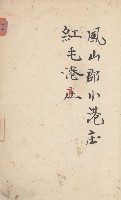 鳳山郡小港庄
紅毛港庄